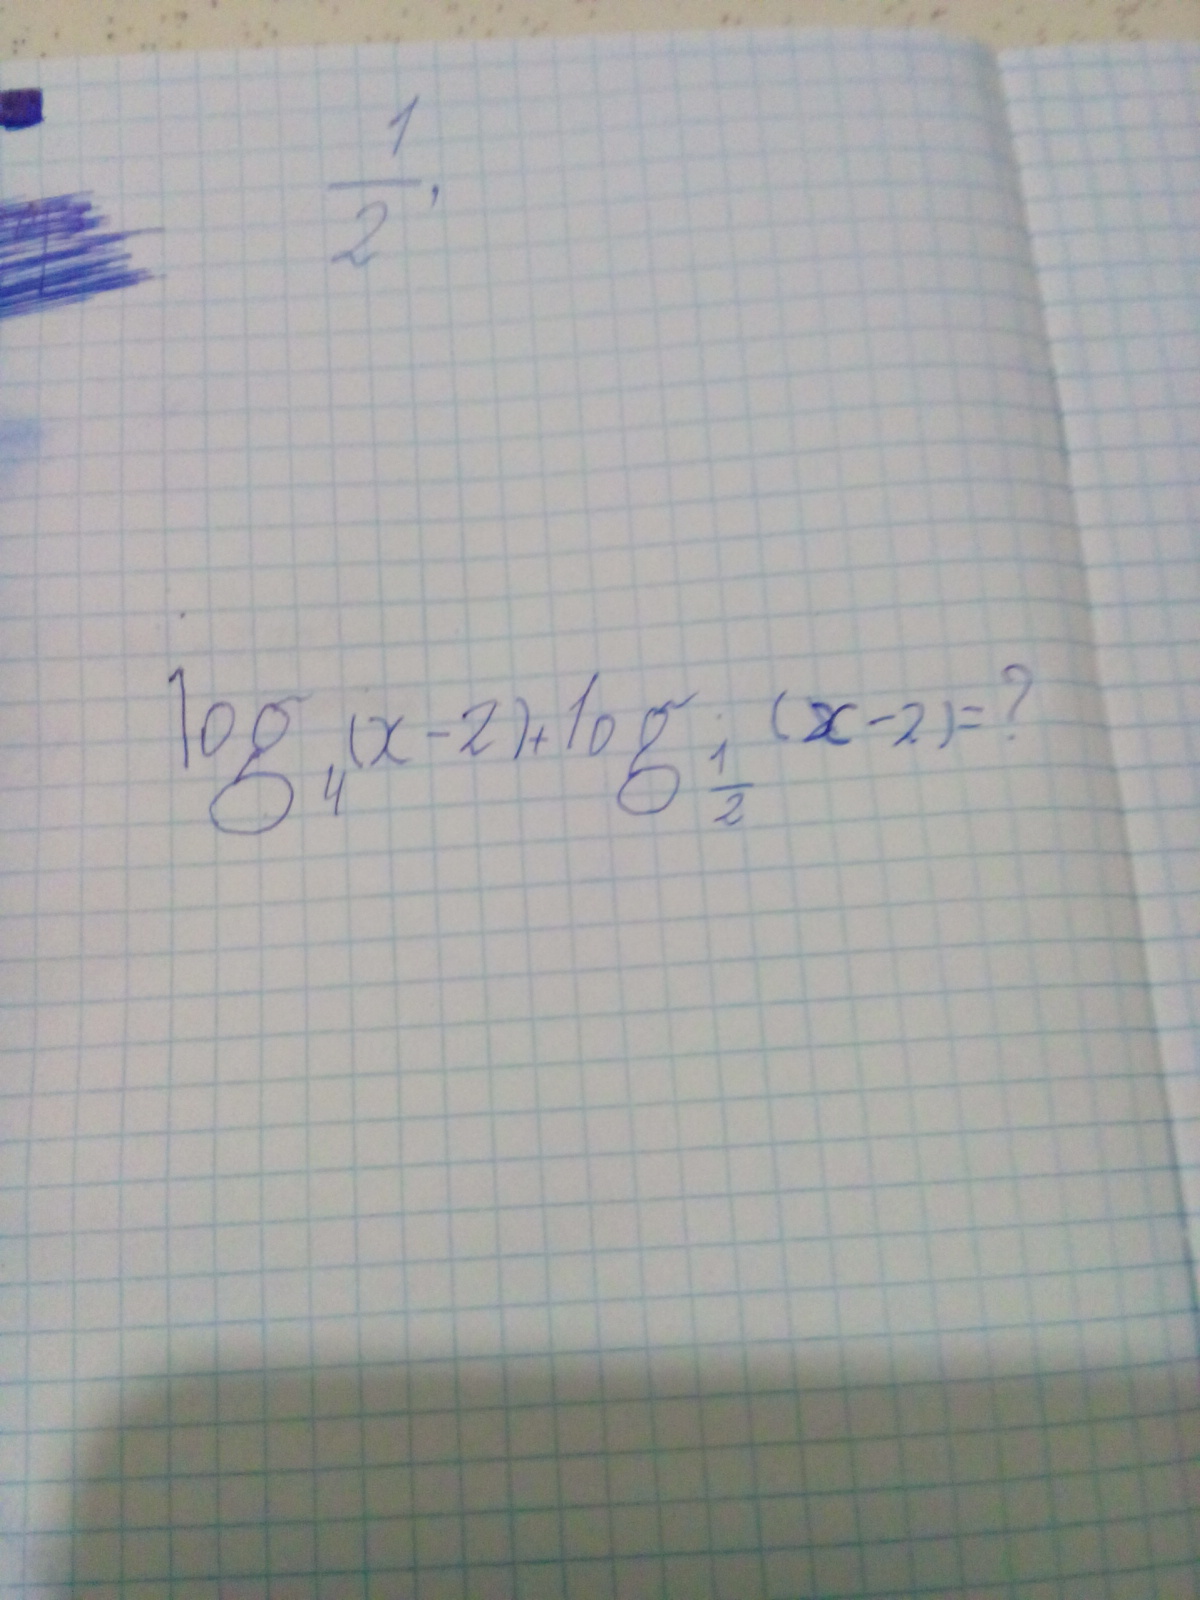 1/2,
log₄(x-2)+log₁/₂(x-2)=?